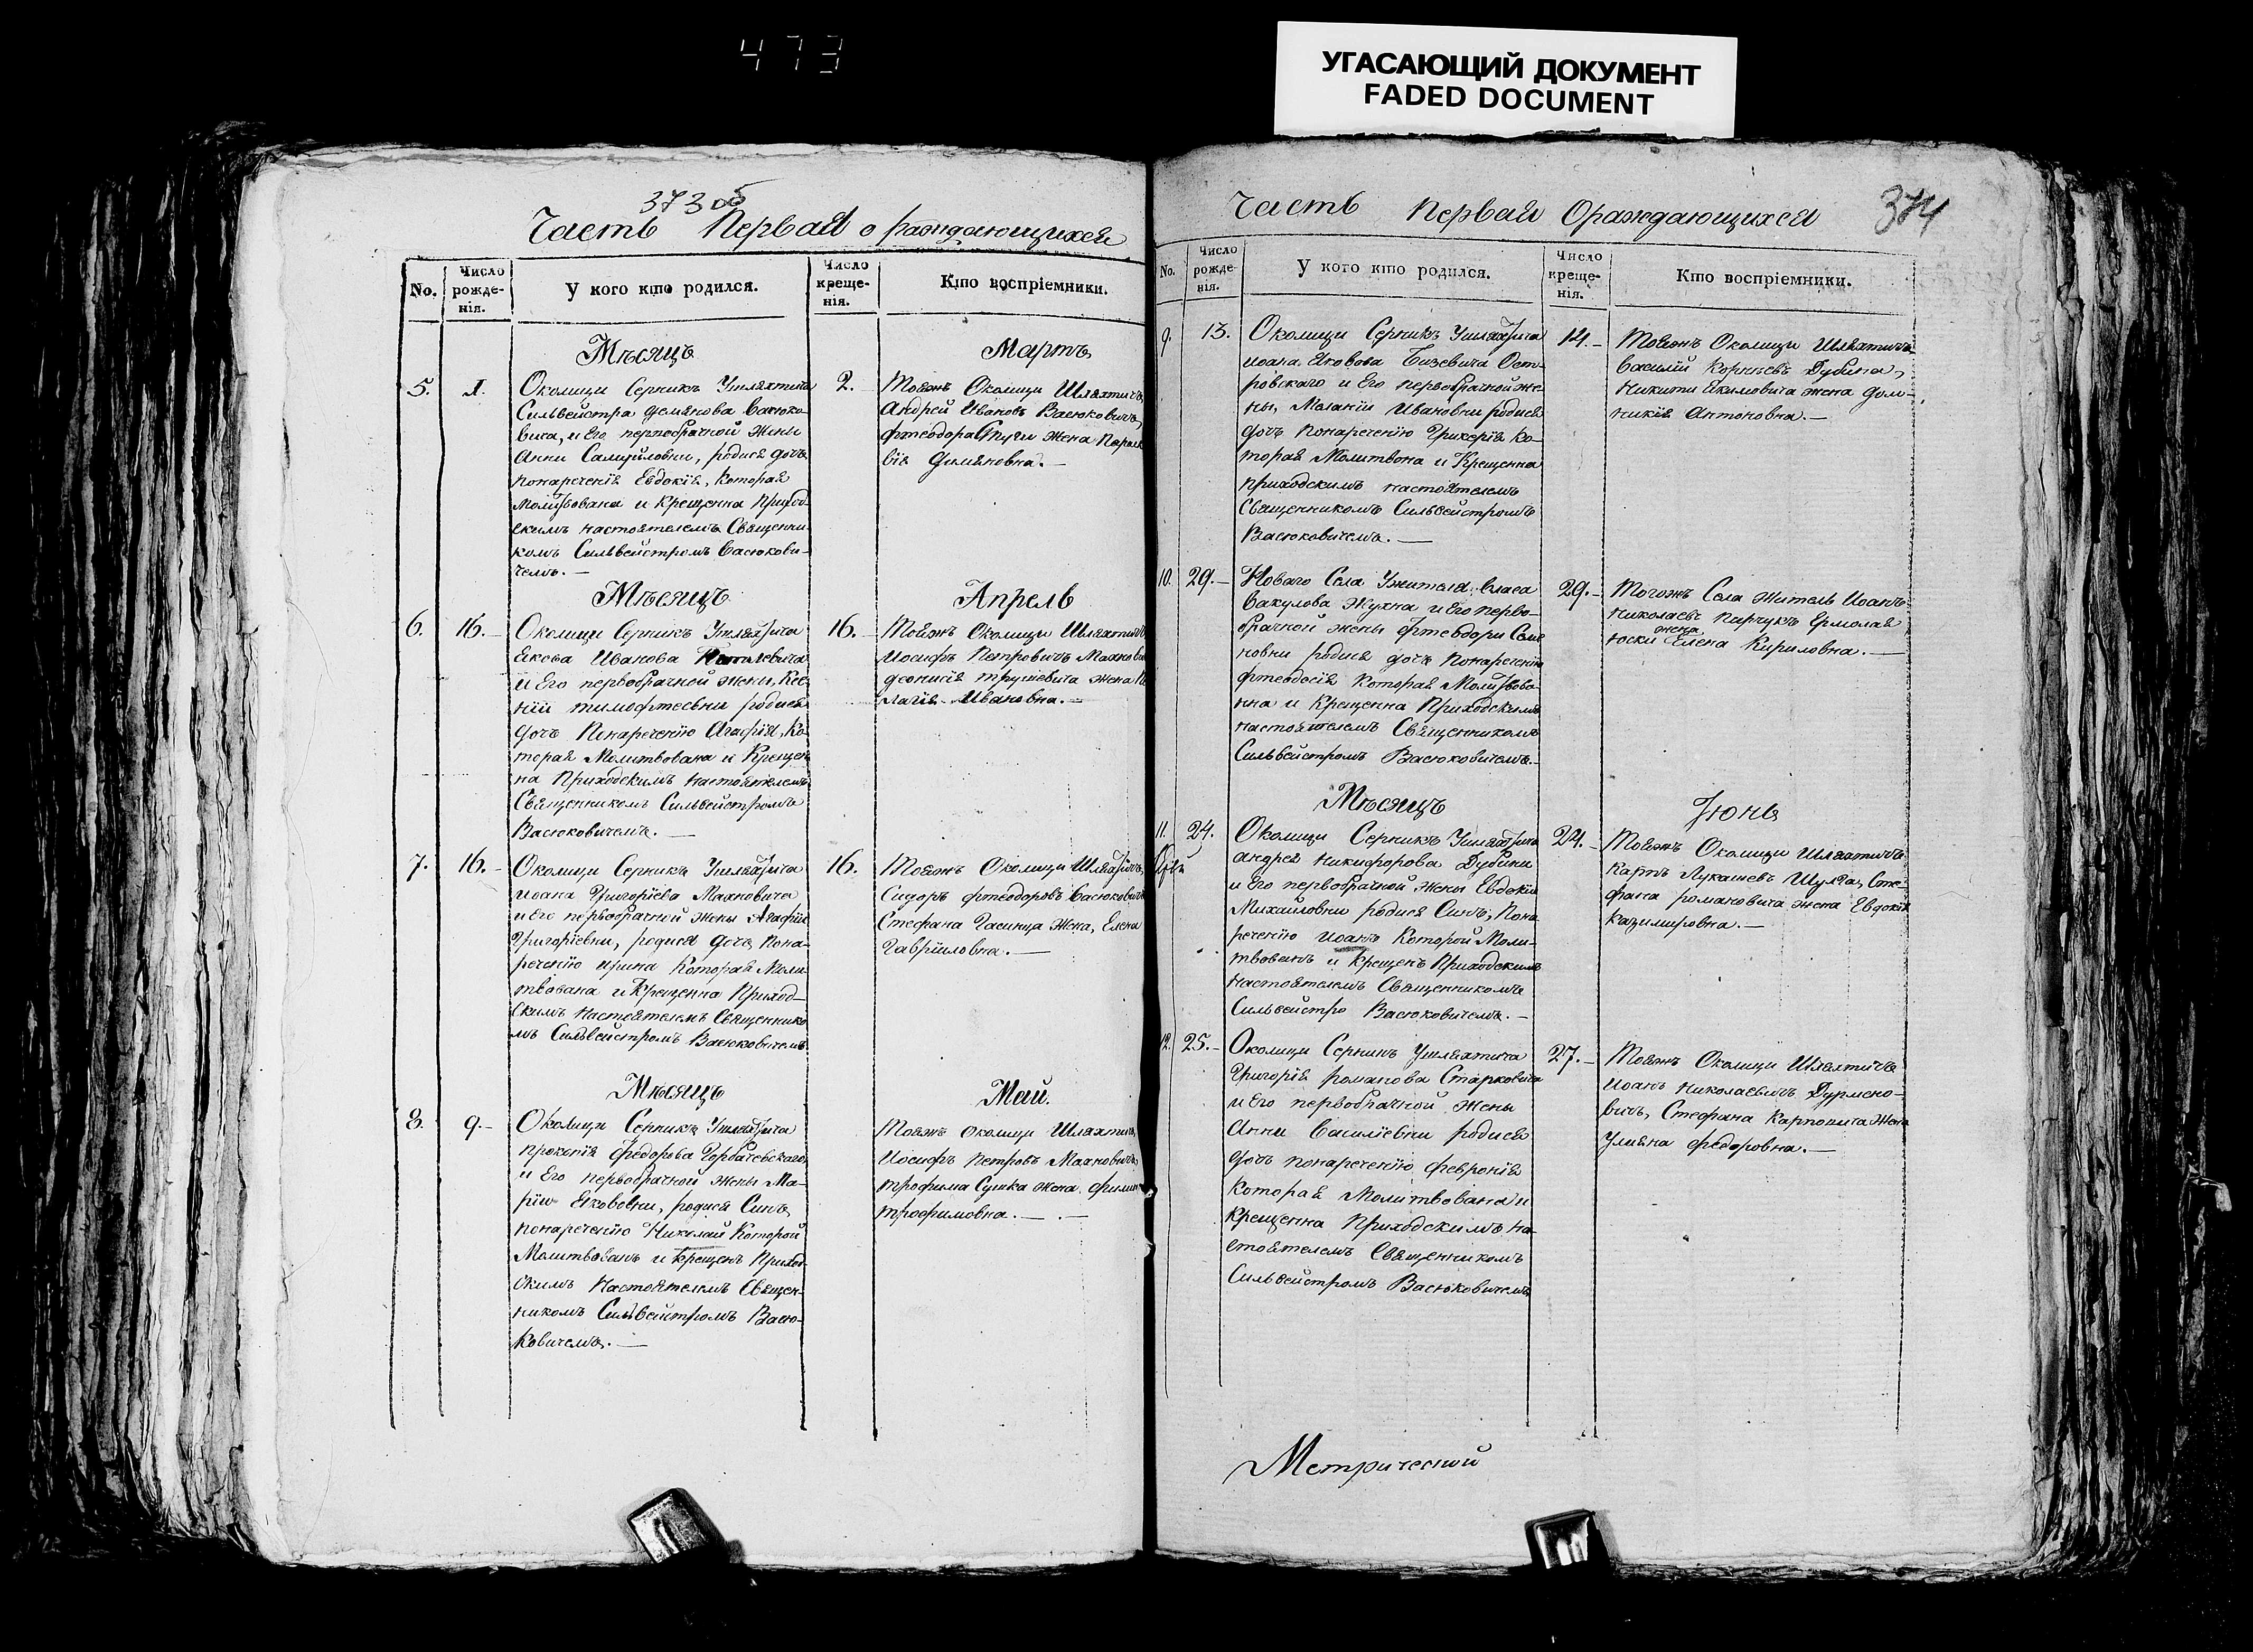 473
УГАСАЮЩИЙ ДОКУМЕНТ
FADED DOCUMENT
373 об
Часть Первая о раждающихся
No.
Число рожде-нія.
У кого кто родился.
Число креще-нія.
Кто воспріемники.
Мѣсяцъ
Мартъ
5.
1.
Околицы Серникъ Ушляхтича
Сильвейстра Демянова Васюко-
вича, и Его первобрачной жены
Анны Самуйловны, родися дочь
понареченія Евдокія, которая
Молитвована и Крещенна Приход-
скимъ настоятелемъ Священни-
комъ Сильвейстромъ Васюкови-
чемъ. —
2.
Тоеяжъ Околицы Шляхтичъ
Андрей Ивановъ Васюковичъ,
Фтеодора жена
вія Демяновна. —
Мѣсяцъ
Апрель
6.
16. —
Околицы Серникъ Ушляхтича
Якова Иванова
и Его первобрачной жены, Ксе-
ніи тимофтеевны родися
дочъ Понареченію Агафія, Ко-
торая Молитвована и Крещен
на Приходскимъ настоятелемъ
Священникомъ Сильвейстромъ
Васюковичемъ. —
16. —
Тоеяжъ Околицы Шляхтичъ
Иосифъ Петровичъ
деонисія жена
лагія Ивановна. —
7.
16. —
Околицы Серникъ Ушляхтича
иоана Григоріева Махновича
и его первобрачной жены Агафіи
Григоріевны, родися дочь Пона-
реченію ирина Которая Моли-
твована и Крещенна Приход-
скимъ Настоятелемъ Священнико
мъ Сильвейстромъ Васюковичемъ
16.
Тоеяжъ Околицы Шляхтичъ,
Сидоръ фтеодоровъ Васюкович
Стефана жена, Елена
Гавриловна. —
Мѣсяцъ
Май.
8.
9. —
Околицы Серникъ Ушляхтича
прокопія Федорова Горбачевскаго
и Его первобрачной жены Ма-
ріи Якововны, родися Синъ,
понареченію Николай Которой
Молитвованъ и Крещенъ Приход-
скимъ Настоятелемъ Священ-
никомъ Сильвейстромъ Васю-
ковичемъ. —
Тоеяжъ околицы Шляхтичъ,
Иосифъ Петровъ Махновичъ,
трофима Сушка жена
трофимовна. —
Часть первая Ораждающихся
374
No.
Число рожде-нія.
У кого кто родился.
Число креще-нія.
Кто воспріемники.
9.
13.
Околицы Серникъ Ушляхтича
иоана Яковова Ост-
ровскаго и Его первобрачной же-
ны, Меланіи Ивановны родися
дочъ понареченію Гликерія ко-
торая Молитвона и Крещенна
приходскимъ настоятелемъ
Священникомъ Сильвейстромъ
Васюковичемъ. —
14. —
Тоеяжъ Околицы Шляхтичъ
Василій Корнѣевъ Дубина,
Никиты Якимовича жена дом-
никія Антоновна. —
10.
29. —
Новаго Села Ужителя Власа
Вакулова Жухна и Его перво-
брачной жены фтеодоры Семе
новны родися дочъ понареченію
фтеодосія которая Молитвова-
нна и Крещенна Приходскимъ
настоятелемъ Священникомъ
Сильвейстромъ Васюковичемъ. —
29. —
Тогожъ Села житель Иоанъ
Николаевъ Ермолая
жена
Елена Кириловна. —
Мѣсяцъ
Іюнь
11.
24.
Околицы Серникъ Ушляхтича
андрея Никифорова Дубины
и Его первобрачной жены Евдокіи
Михайловны родися Синъ, Пона
реченію иоанъ Которой Моли-
твованъ и Крещенъ Приходскимъ
настоятелемъ Священникомъ
Сильвейстро Васюковичемъ. —
24. —
Тоеяжъ Околицы Шляхтичъ
Карпъ Лукашевъ Шулга, Сте-
фана романовича жена Евдокія
казимировна. —
12.
25. —
Околицы Серникъ Ушляхтича
Григорія романова Старковича
и Его первобрачной жены
Анны Василіевны родися
дочъ понареченію февронія
которая Молитвована и
Крещенна Приходскимъ на-
стоятелемъ Священникомъ
Сильвейстромъ Васюковичемъ
27. —
Тоеяжъ Околицы Шляхтичъ
Иоанъ Николаевичъ Дурмано-
вичъ, Стефана Карповича жена
Улияна федоровна. —
Метрической